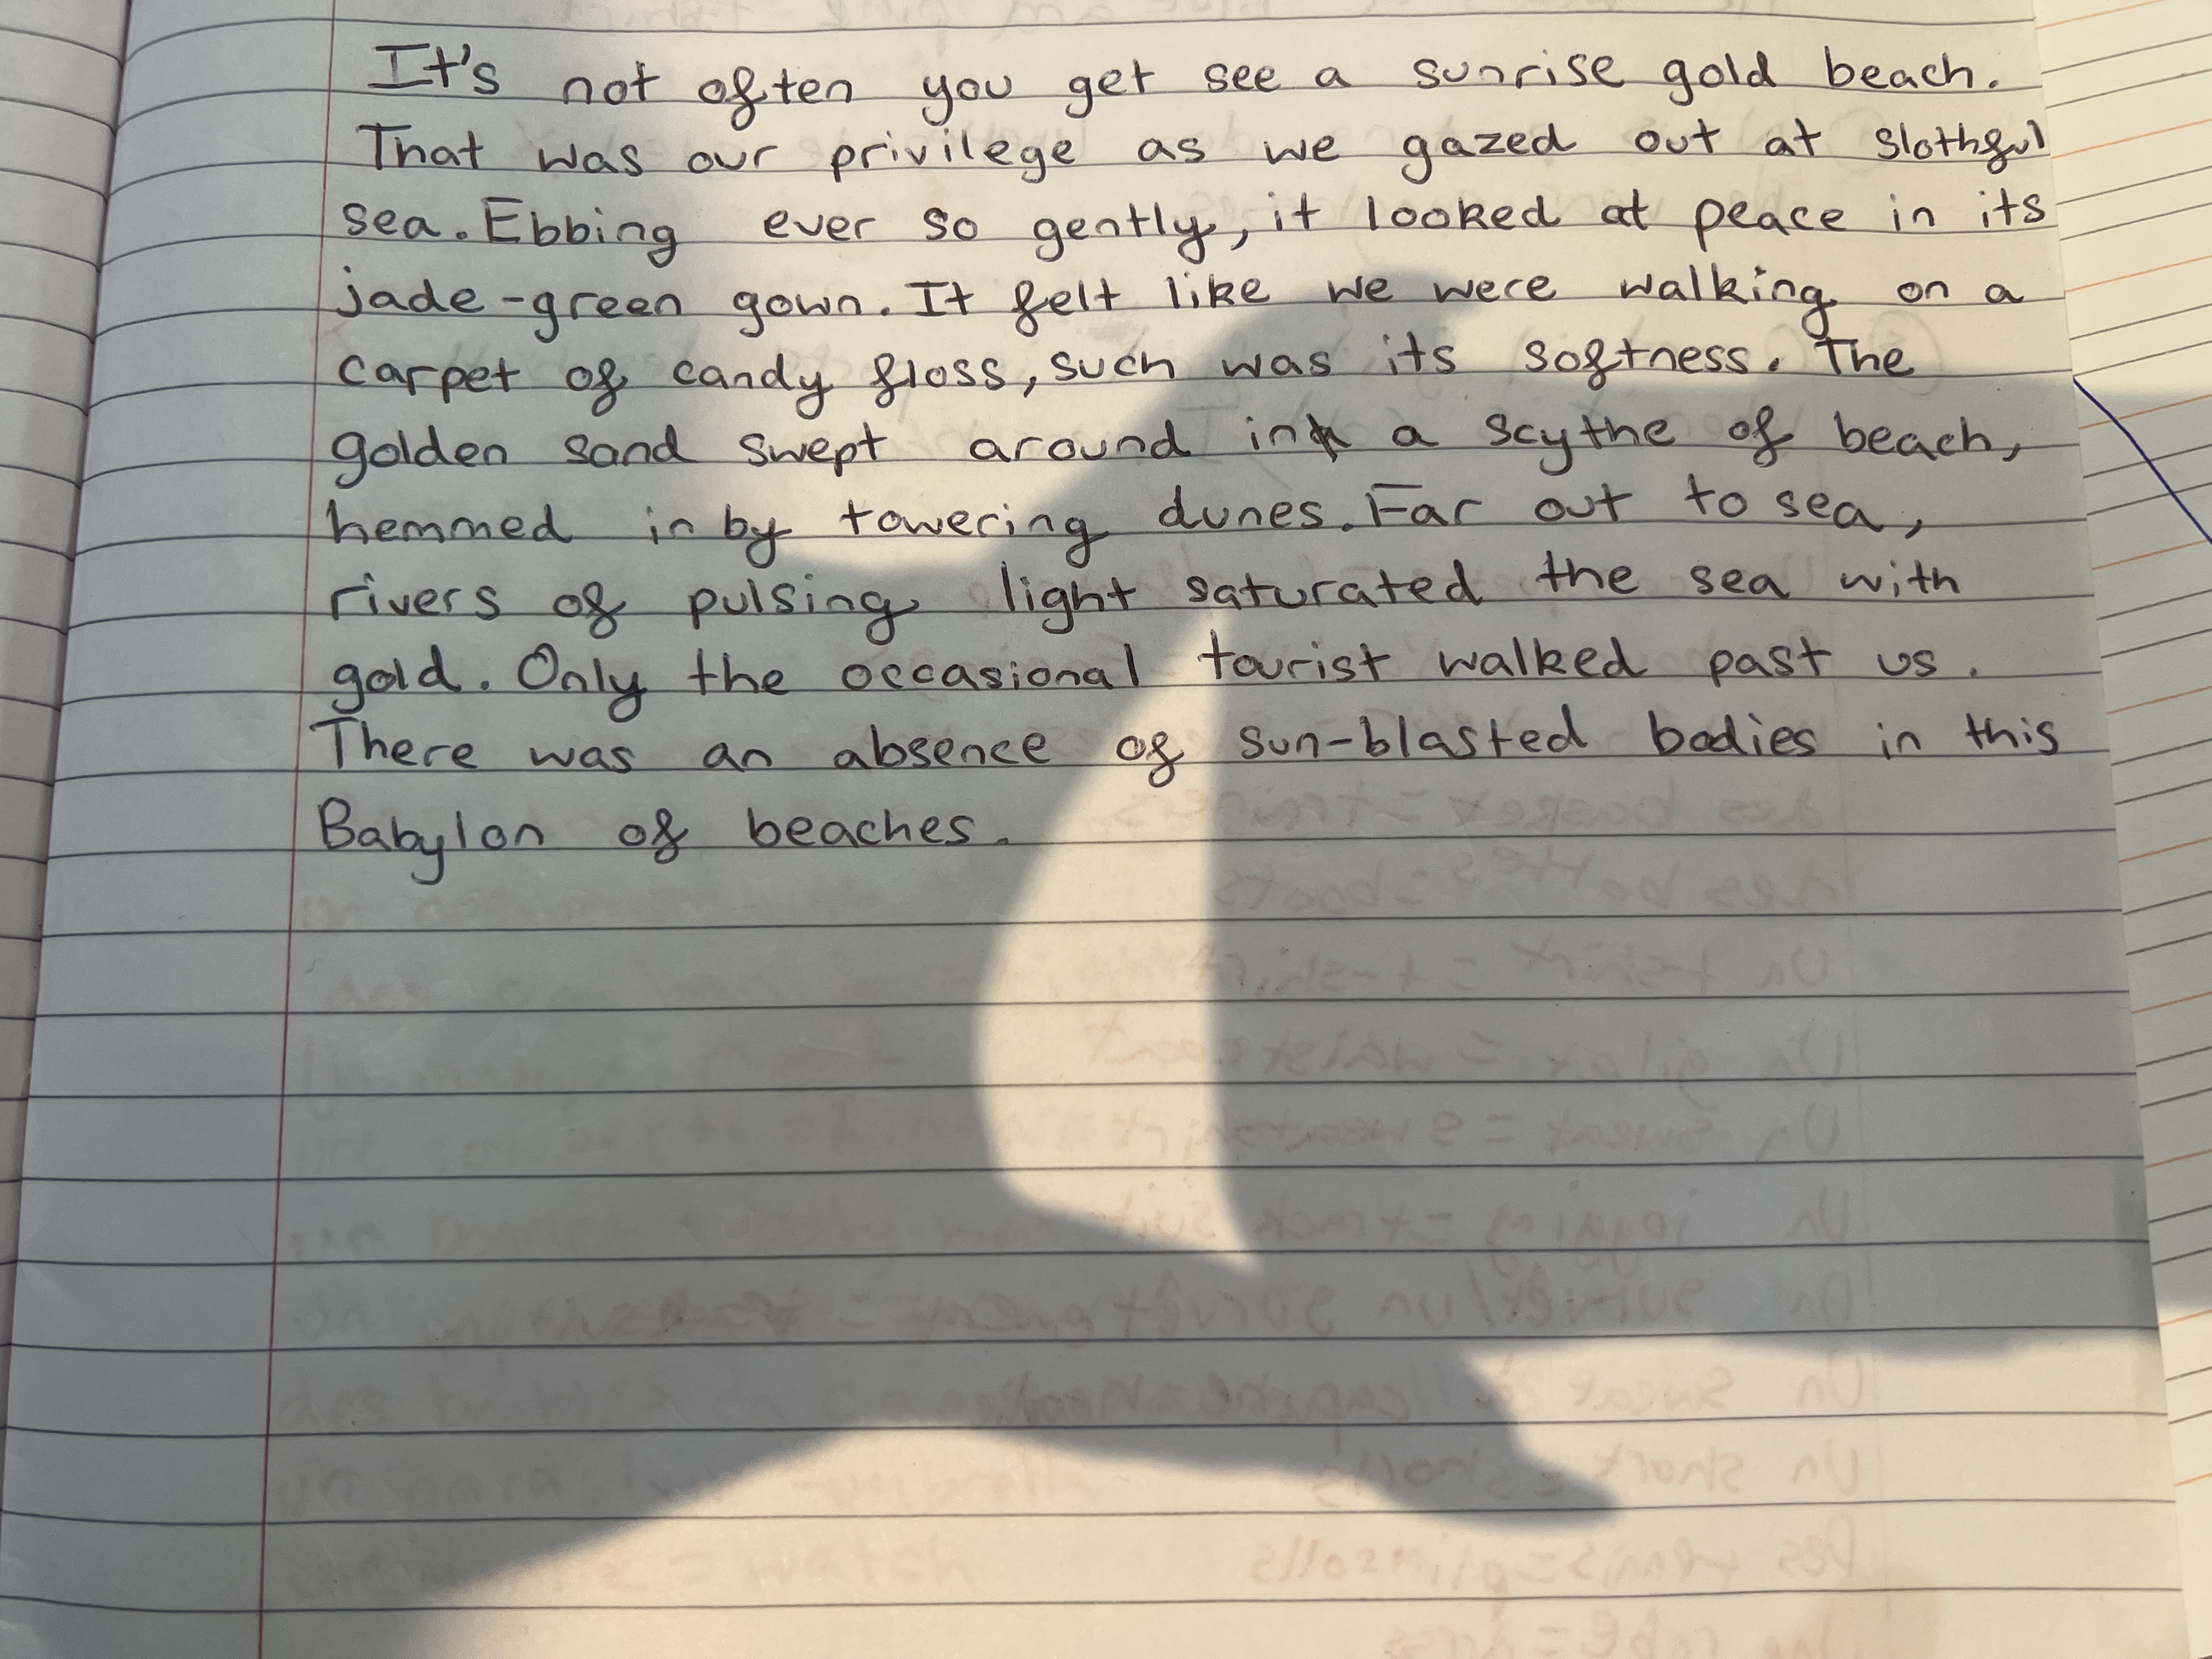 It's not often you get see a sunrise gold beach.
That was our privilege as we gazed out at slothful
sea. Ebbing ever so gently, it looked at peace in its
jade-green gown. It felt like we were walking on a
carpet of candy floss, such was its softness. The
golden sand swept around in a scythe of beach,
hemmed in by towering dunes. Far out to sea,
rivers of pulsing light saturated the sea with
gold. Only the occasional tourist walked past us.
There was an absence of sun-blasted bodies in this
Babylon of beaches.